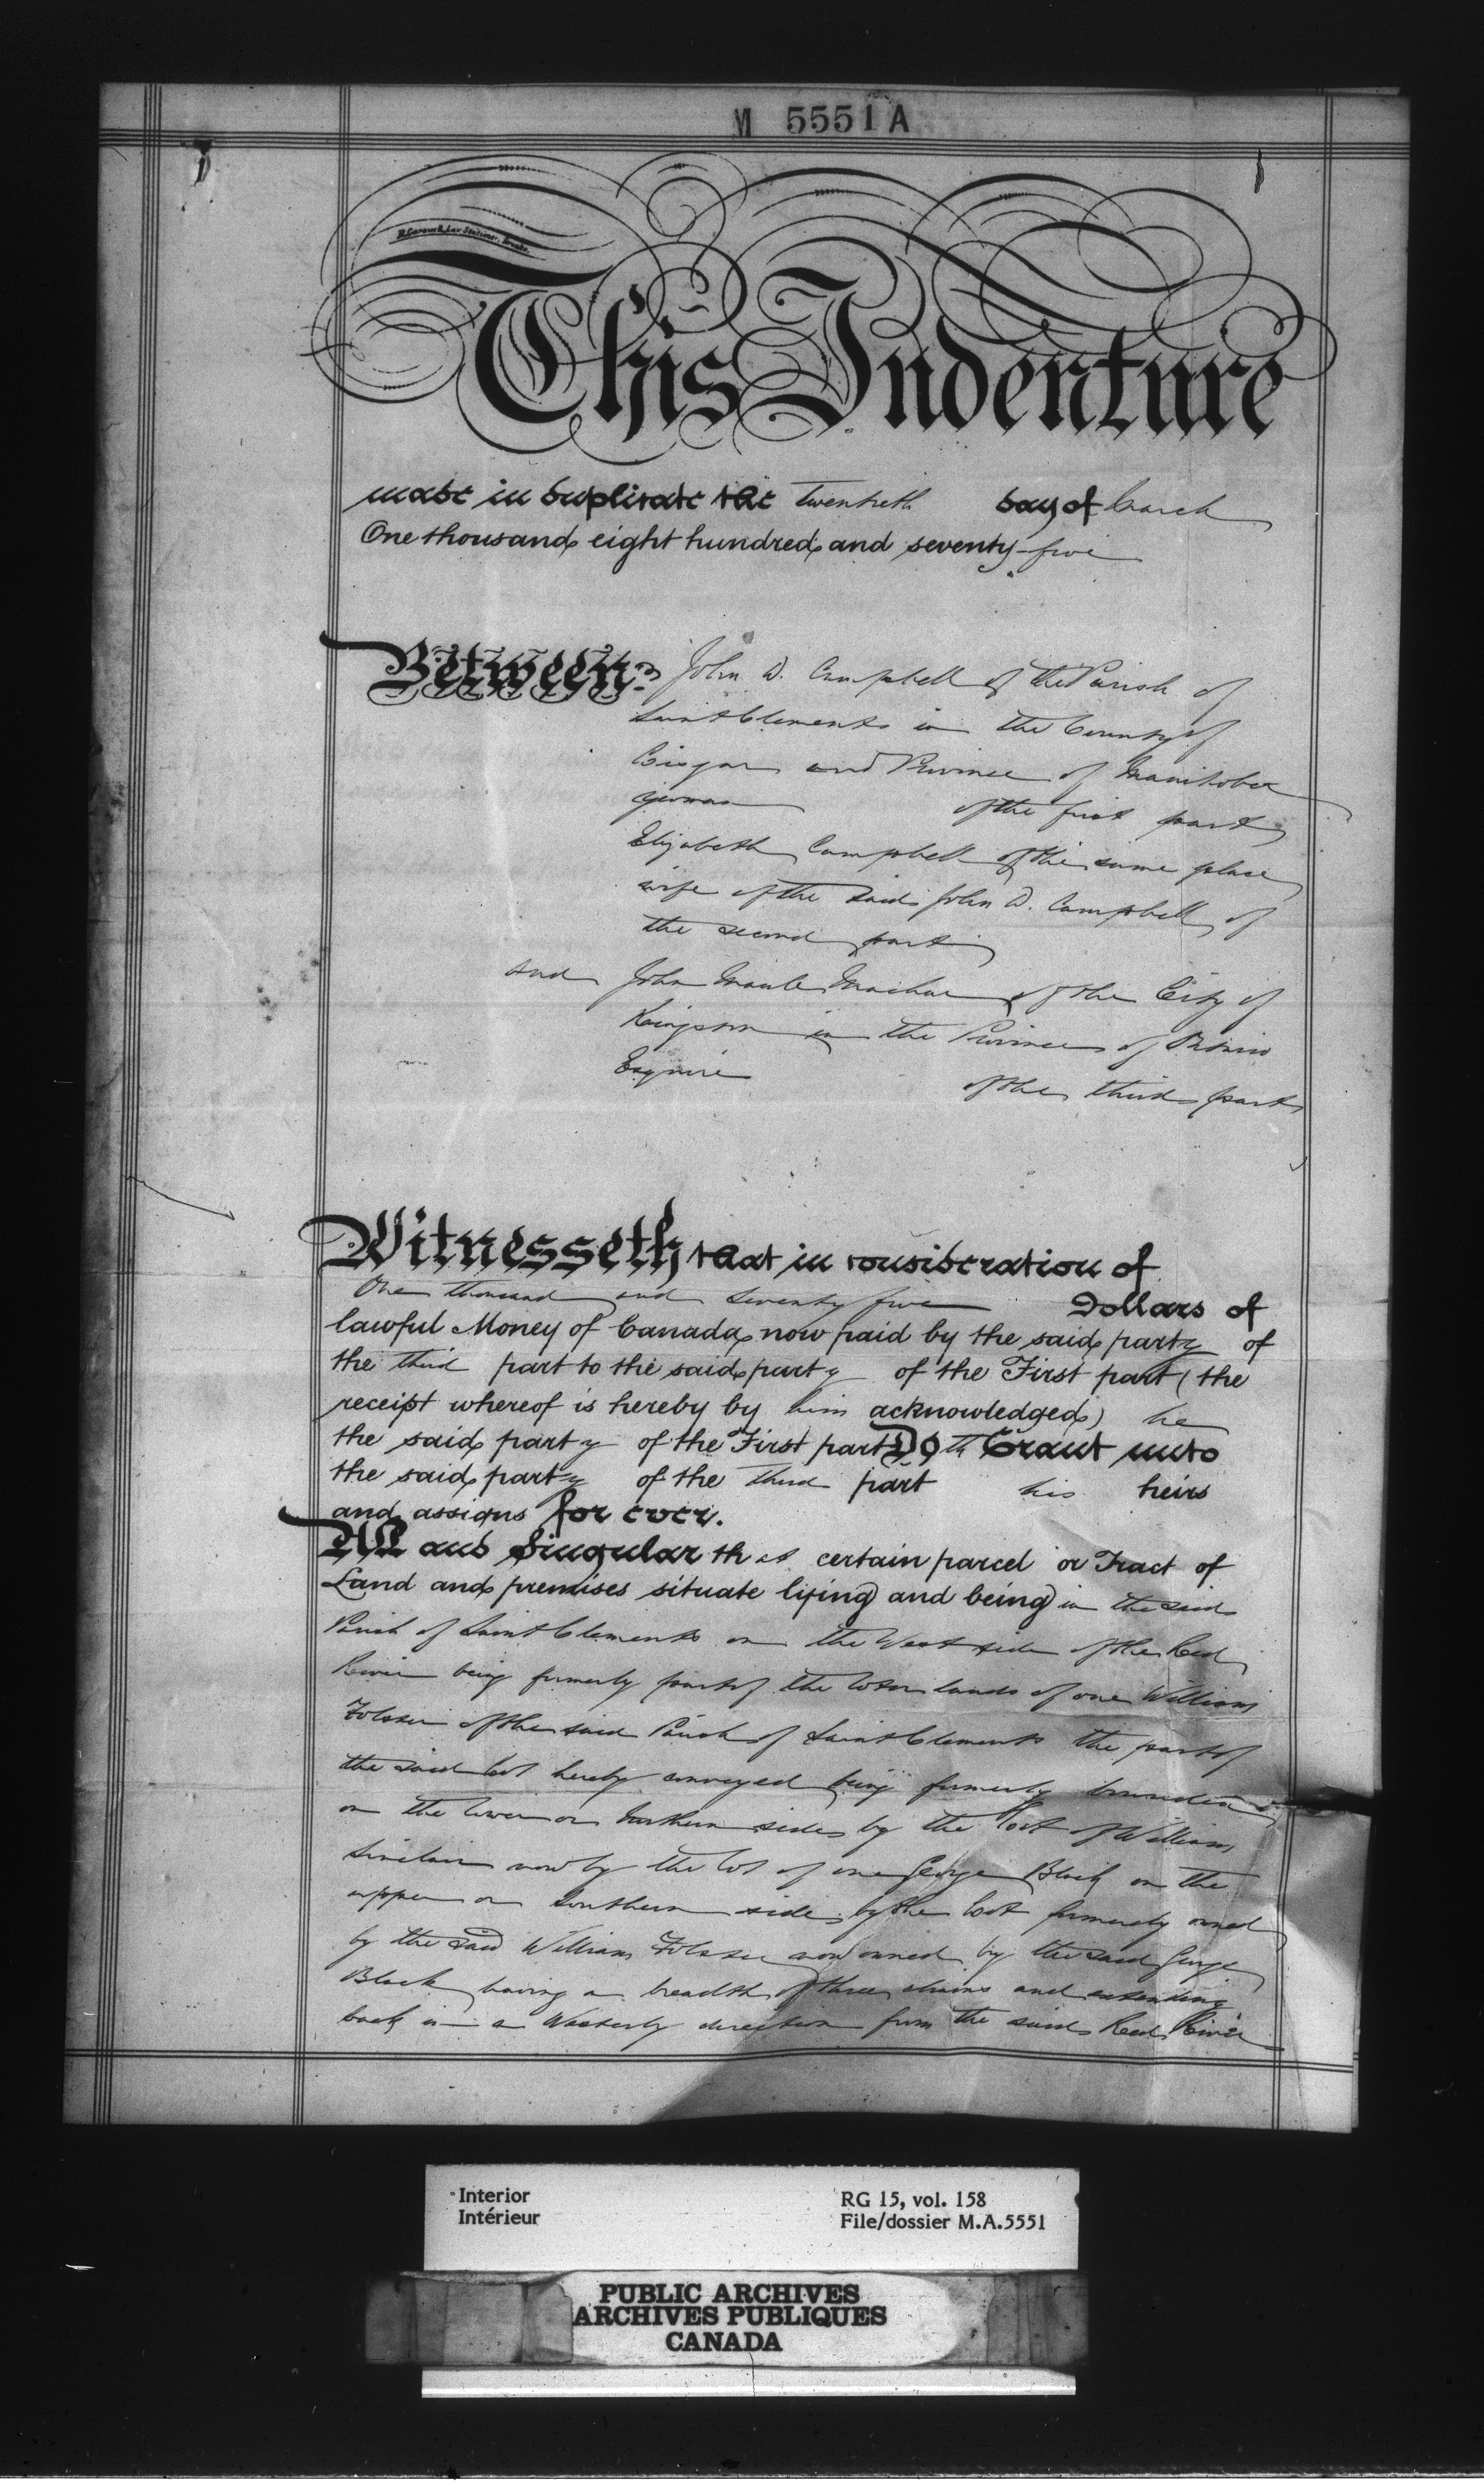 M 5551 A
This Indenture
made in duplicate the Twentieth day of March
One thousand eight hundred and seventy-five
Between John D. Campbell of the Parish of
Saint Clements in the County of
Lisgar and Province of Manitoba
yeoman of the first part
Elizabeth Campbell of the same place
wife of the said John D. Campbell of
the second part
and John Machar of the City of
Kingston in the Province of Ontario
Esquire of the third part
Witnesseth that in consideration of
One thousand and seventy five Dollars of
lawful Money of Canada now paid by the said party of
the third part to the said party of the First part (the
receipt whereof is hereby by him acknowledged) he
the said party of the First part Doth Grant unto
the said party of the Third part his heirs
and assigns for ever.
All and Singular that certain parcel or Tract of
Land and premises situate lying and being in the said
Parish of Saint Clements on the West side of the Red
River being formerly part of the lands of one William
Folster of the said Parish of Saint Clements the part of
the said lot hereby conveyed being formerly bounded
on the lower or Northern side by the lot of William
Sinclair now by the lot of one George Black on the
upper or Southern side by the lot formerly owned
by the said William Folster now owned by the said George
Black having a breadth of three chains and extending
back in a Westerly direction from the said Red River
Interior
Intérieur
RG 15, vol. 158
File/dossier M.A.5551
PUBLIC ARCHIVES
ARCHIVES PUBLIQUES
CANADA